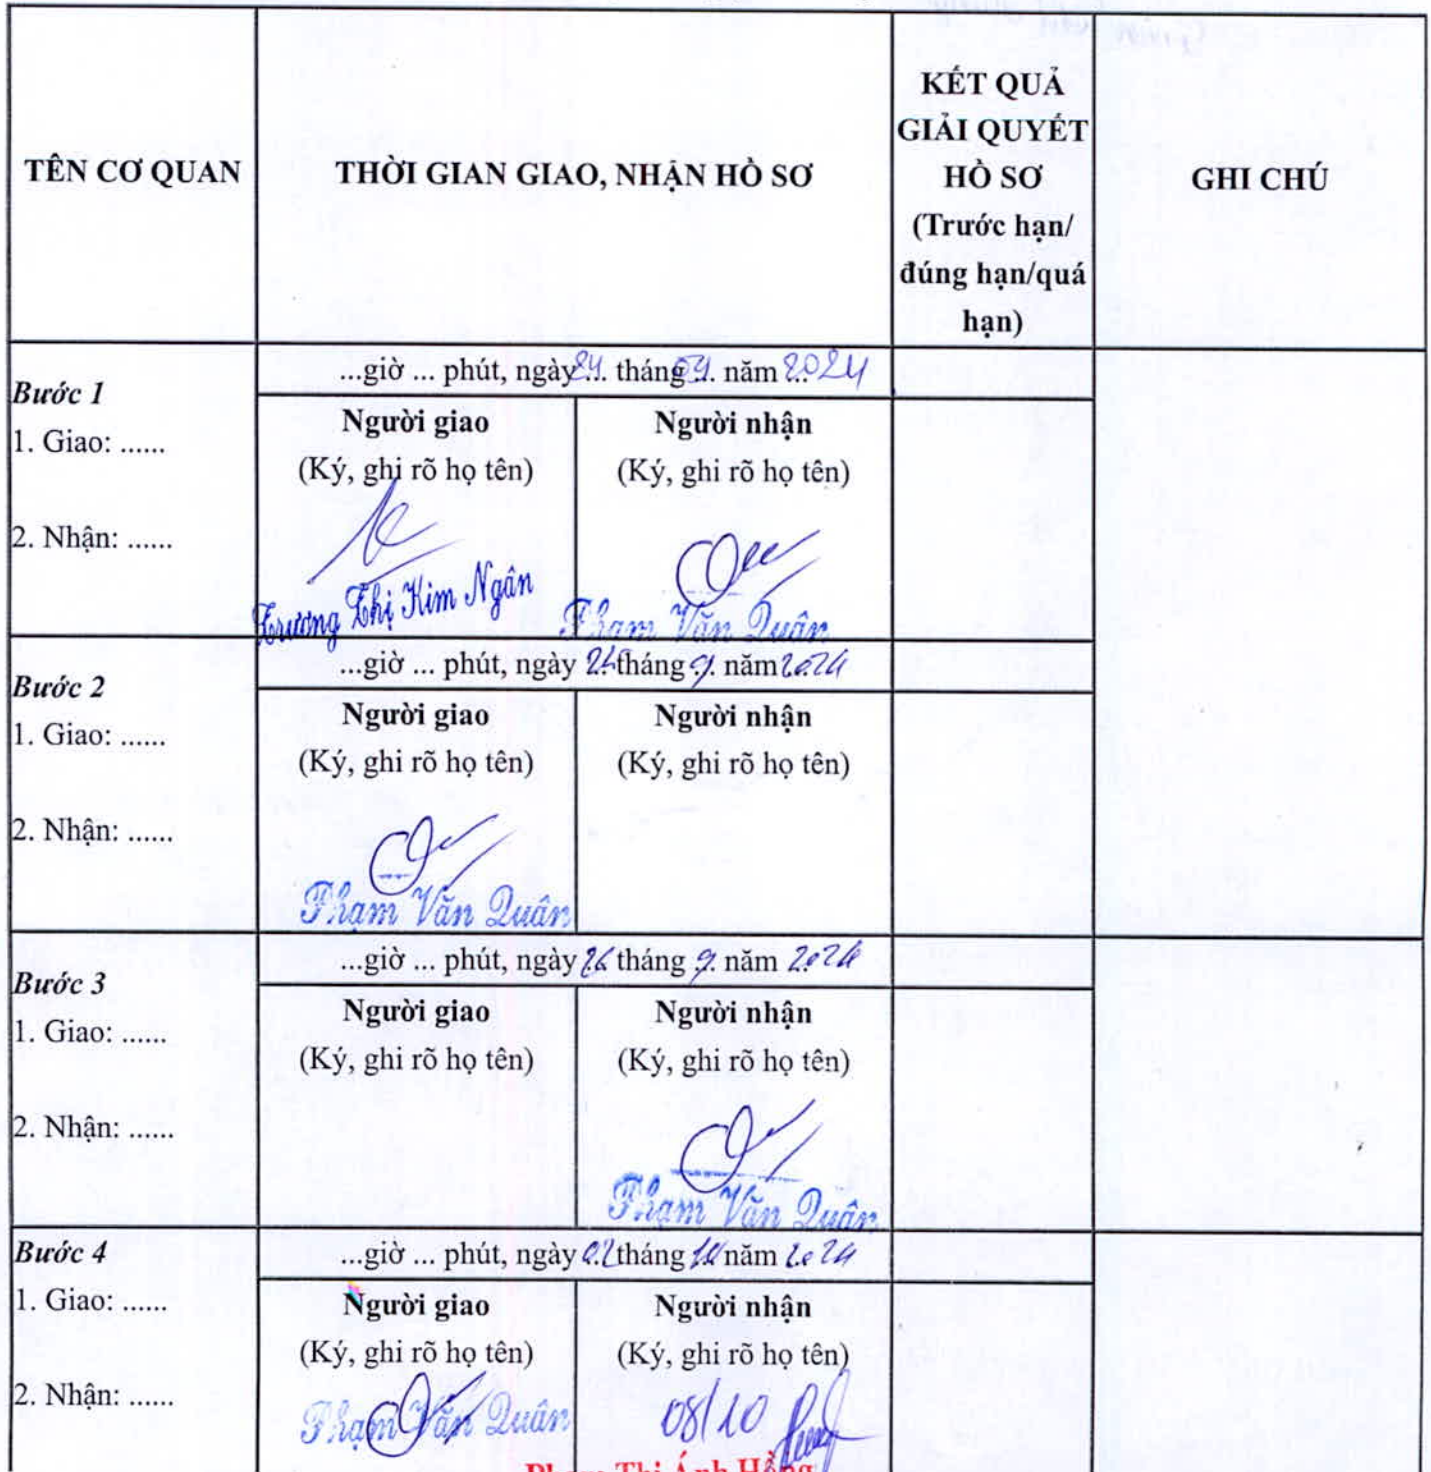 TÊN CƠ QUAN
THỜI GIAN GIAO, NHẬN HỒ SƠ
KẾT QUẢ
GIẢI QUYẾT
HỒ SƠ
(Trước hạn/
đúng hạn/quá
hạn)
GHI CHÚ
Bước 1
1. Giao: ......
2. Nhận: ......
...giờ ... phút, ngày 24 tháng 09 năm 2024
Người giao
(Ký, ghi rõ họ tên)
Trương Thị Kim Ngân
Người nhận
(Ký, ghi rõ họ tên)
Phạm Văn Quân
Bước 2
1. Giao: ......
2. Nhận: ......
...giờ ... phút, ngày tháng 9 năm 2024
Người giao
(Ký, ghi rõ họ tên)
Phạm Văn Quân
Người nhận
(Ký, ghi rõ họ tên)
Bước 3
1. Giao: ......
2. Nhận: ......
...giờ ... phút, ngày 26 tháng 9 năm 2024
Người giao
(Ký, ghi rõ họ tên)
Người nhận
(Ký, ghi rõ họ tên)
Phạm Văn Quân
Bước 4
1. Giao: ......
2. Nhận: ......
...giờ ... phút, ngày 02 tháng 10 năm 2024
Người giao
(Ký, ghi rõ họ tên)
Phạm Văn Quân
Người nhận
(Ký, ghi rõ họ tên)
08/10
Phạm Thị Ánh Hồng